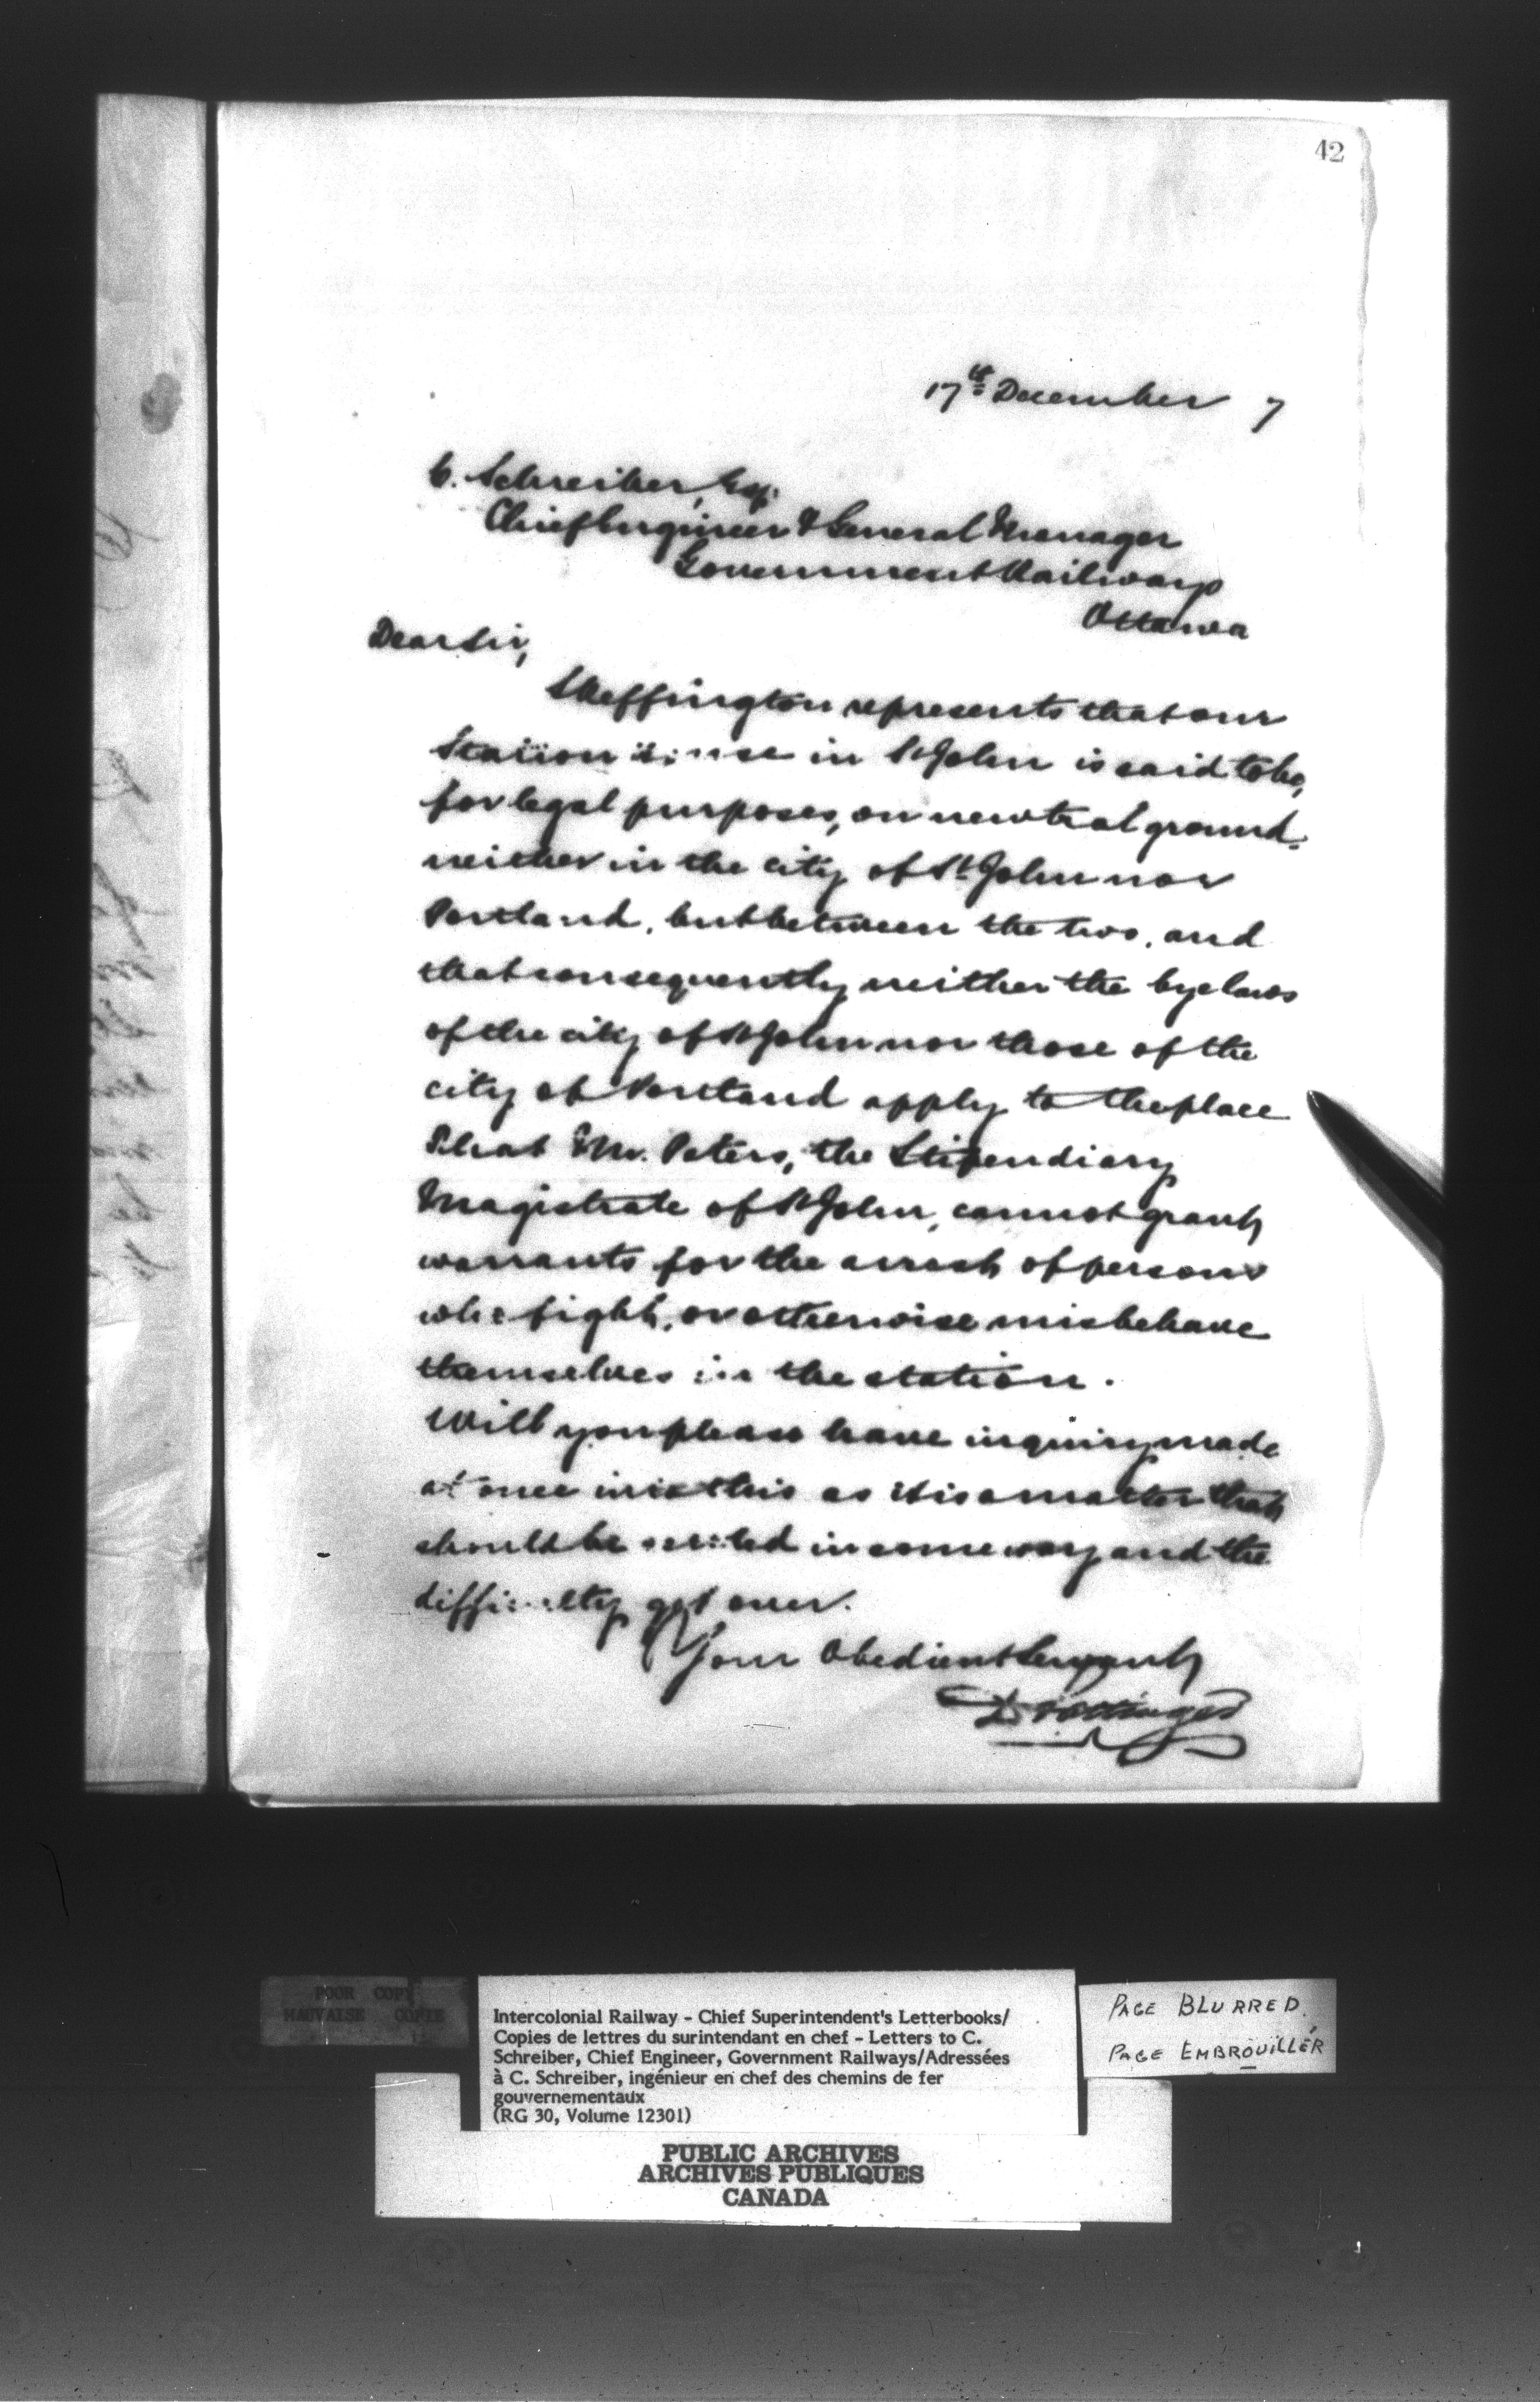 42
17th December 7
C. Schreiber, Esq.
Chief Engineer & General Manager
Government Railways
Ottawa
Dear Sir,
Skeffington represents that our
Station House in St John is said to be,
for legal purposes, on newtral ground.
neither in the city of St John nor
Portland, but between the two, and
that consequently neither the bye laws
of the city of St John nor those of the
city of Portland apply to the place
That Mr. Peters, the Stipendiary
Magistrate of St John, cannot grant
warrants for the arrest of persons
who fight, or otherwise misbehave
themselves in the station.
Will you please have inquiry made
at once into this as it is a matter that
should be settled in some way and the
difficulty got over.
Your Obedient Servant
D Pottinger
POOR COPY
MAUVAISE COPIE
Intercolonial Railway - Chief Superintendent's Letterbooks/
Copies de lettres du surintendant en chef - Letters to C.
Schreiber, Chief Engineer, Government Railways/Adressées
à C. Schreiber, ingénieur en chef des chemins de fer
gouvernementaux
(RG 30, Volume 12301)
PAGE BLURRED.
PAGE EMBROUILLÉR
PUBLIC ARCHIVES
ARCHIVES PUBLIQUES
CANADA